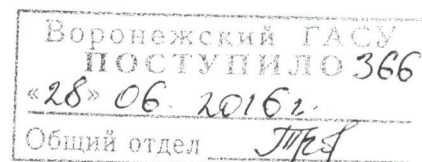 Воронежский ГАСУ
ПОСТУПИЛО 366
«28» 06. 2016г.
Общий отдел